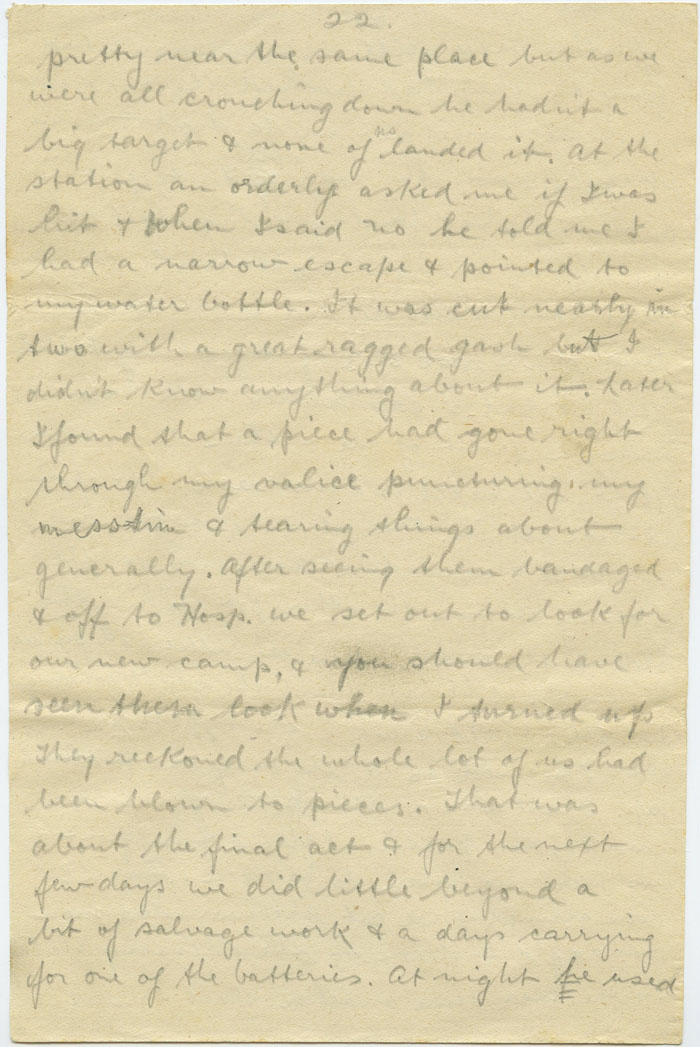 22.
pretty near the same place but as we
were all crouching down he hadn't a
big target & none of us landed it. At the
station an orderly asked me if I was
hit & when I said no he told me I
had a narrow escape & pointed to
my water bottle. It was cut nearly in
two with a great ragged gash but I
didn't know anything about it. Later
I found that a piece had gone right
through my valice puncturing my
messtin & tearing things about
generally. After seeing them bandaged
& off to Hosp. we set out to look for
our new camp, & you should have
seen them look when I turned up
They reckoned the whole lot of us had
been blown to pieces. That was
about the final act & for the next
few days we did little beyond a
bit of salvage work & a days carrying
for one of the batteries. At night he used